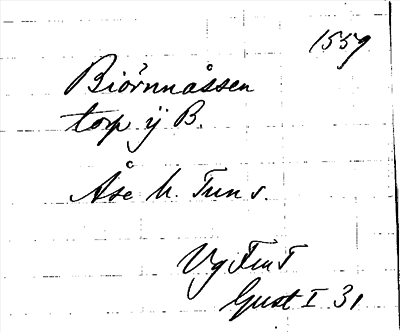 1559
Biörnmåssen
torp ÿ B.
Åse h. Tun s.
Vg Fru T
Gust I 31